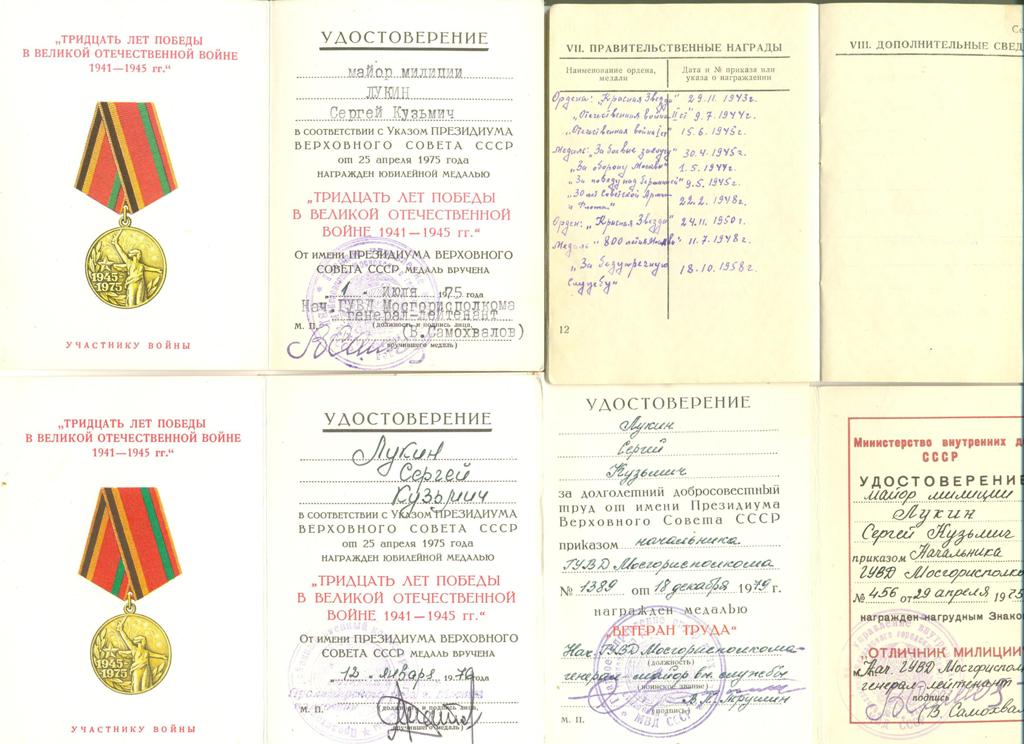 „ТРИДЦАТЬ ЛЕТ ПОБЕДЫ
В ВЕЛИКОЙ ОТЕЧЕСТВЕННОЙ ВОЙНЕ
1941—1945 гг.“
1945
1975
УЧАСТНИКУ ВОЙНЫ
УДОСТОВЕРЕНИЕ
майор милиции
ЛУКИН
Сергей Кузьмич
В СООТВЕТСТВИИ С УКАЗОМ ПРЕЗИДИУМА
ВЕРХОВНОГО СОВЕТА СССР
от 25 апреля 1975 года
НАГРАЖДЕН ЮБИЛЕЙНОЙ МЕДАЛЬЮ
„ТРИДЦАТЬ ЛЕТ ПОБЕДЫ
В ВЕЛИКОЙ ОТЕЧЕСТВЕННОЙ
ВОЙНЕ 1941—1945 гг.“
От имени ПРЕЗИДИУМА ВЕРХОВНОГО
СОВЕТА СССР МЕДАЛЬ ВРУЧЕНА
„1“ Июля 1975 года
Нач. ГУВД Мосгорисполкома
генерал-лейтенант
М. П. (должность и подпись лица,
(В.Самохвалов)
вручившего медаль)
VII. ПРАВИТЕЛЬСТВЕННЫЕ НАГРАДЫ
Наименование ордена, медали
Дата и № приказа или указа о награждении
Ордена: „Красная Звезда“ 29.11.1943г.
„Отечественная война II ст“ 9.7.1944г.
„Отечественная война I ст“ 15.6.1945г.
Медаль: „За боевые заслуги“ 30.4.1945г.
„За оборону Москвы“ 1.5.1944г.
„За победу над Германией“ 9.5.1945г.
„30 лет Советской Армии
и Флота“ 22.2.1948г.
Орден: „Красная Звезда“ 24.11.1950г.
Медаль „800 летия Москвы“ 11.7.1948г.
„За безупречную 18.10.1958г.
службу“
12
VIII. ДОПОЛНИТЕЛЬНЫЕ СВЕД
„ТРИДЦАТЬ ЛЕТ ПОБЕДЫ
В ВЕЛИКОЙ ОТЕЧЕСТВЕННОЙ ВОЙНЕ
1941—1945 гг.“
1945
1975
УЧАСТНИКУ ВОЙНЫ
УДОСТОВЕРЕНИЕ
Лукин
Сергей
Кузьмич
В СООТВЕТСТВИИ С УКАЗОМ ПРЕЗИДИУМА
ВЕРХОВНОГО СОВЕТА СССР
от 25 апреля 1975 года
НАГРАЖДЕН ЮБИЛЕЙНОЙ МЕДАЛЬЮ
„ТРИДЦАТЬ ЛЕТ ПОБЕДЫ
В ВЕЛИКОЙ ОТЕЧЕСТВЕННОЙ
ВОЙНЕ 1941—1945 гг.“
От имени ПРЕЗИДИУМА ВЕРХОВНОГО
СОВЕТА СССР МЕДАЛЬ ВРУЧЕНА
12 января 1979
М. П. (должность и подпись лица,
вручившего медаль)
УДОСТОВЕРЕНИЕ
Лукин
Сергей
Кузьмич
за долголетний добросовестный
труд от имени Президиума
Верховного Совета СССР
приказом начальника
ГУВД Мосгорисполкома
№ 1389 от 18 декабря 1979 г.
награжден медалью
“ВЕТЕРАН ТРУДА”
Нач. ГУВД Мосгорисполкома
(должность)
генерал-майор вн. службы
(воинское звание)
В.П. Трушин
(подпись)
М. П.
МВД СССР
Министерство внутренних д
СССР
УДОСТОВЕРЕНИЕ
майор милиции
Лукин
Сергей Кузьмич
приказом Начальника
ГУВД Мосгорисполко
№ 456 от 29 апреля 1975
награжден нагрудным Знако
„ОТЛИЧНИК МИЛИЦИИ
Нач. ГУВД Мосгорисполк
генерал-лейтенант
подпись
(В. Самохвал